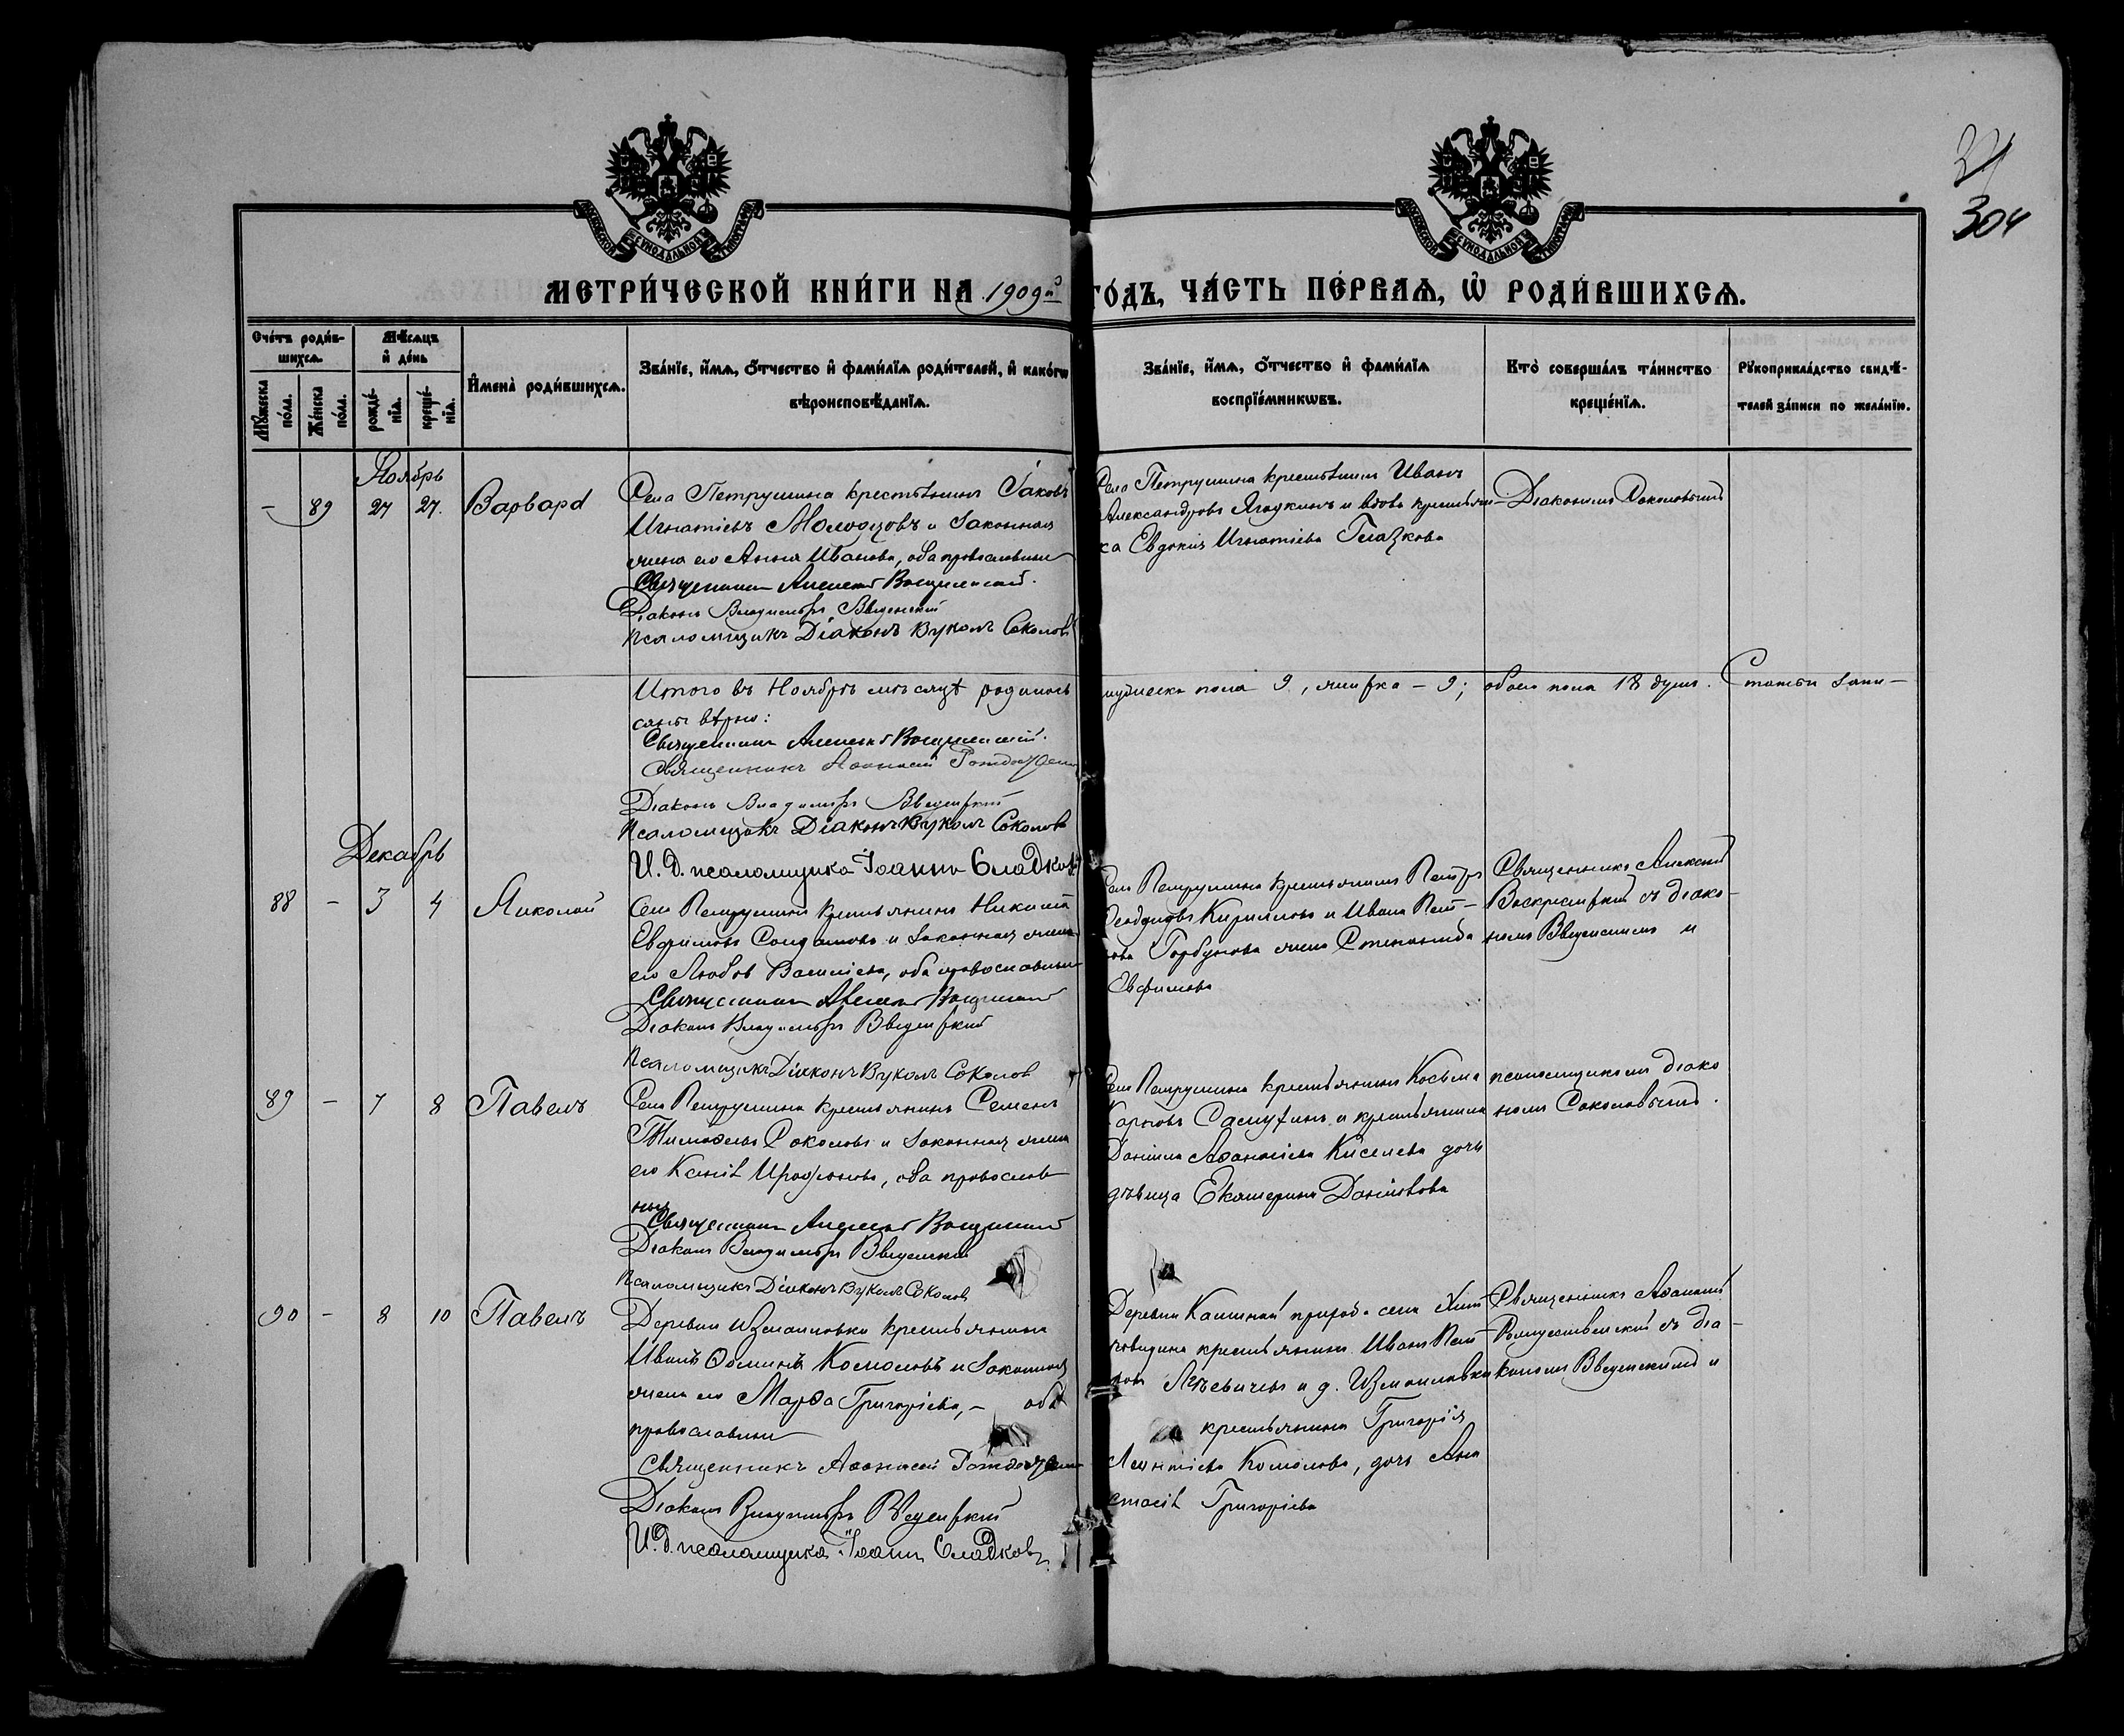 304
МОСКОВСКОЙ СѴНОДАЛЬНОЙ ТИПОГРАФІИ
МОСКОВСКОЙ СѴНОДАЛЬНОЙ ТИПОГРАФІИ
МЕТРИ́ЧЕСКОЙ КНИ́ГИ НА 1909й ГО́ДЪ, ЧА́СТЬ ПЕ́РВАѦ, Ѡ҆ РОДИ́ВШИХСѦ.
Сче́тъ роди́в-
шихсѧ.
Мꙋ́жеска по́ла.
Же́нска по́ла.
Мѣ́сѧцъ
и҆ де́нь
рожде́-
нїѧ.
креще́-
нїѧ.
И҆мена̀ роди́вшихсѧ.
Зва́нїе, и҆́мѧ, ѻ҆́тчество и҆ фами́лїѧ роди́телей, и҆ како́гѡ
вѣроисповѣ́данїѧ.
Зва́нїе, и҆́мѧ, ѻ҆́тчество и҆ фами́лїѧ
воспрїе́мникѡвъ.
Кто̀ соверша́лъ та́инство
креще́нїѧ.
Рꙋкоприкла́дство свидѣ́-
телей за́писи по жела́нїю.
Ноябрь
- 89 27 27. Варвара
Села Петрушина крестьянинъ Іаковъ
Игнатіевъ Молодцовъ и законная
жена его Анна Иванова, оба православные
Священникъ Алексій Воскресенскій.
Діаконъ Владиміръ Введенскій
Псаломщикъ Діаконъ Вуколъ Соколовъ
Села Петрушина крестьянинъ Иванъ
Александровъ Ягодкинъ и вдова крестьян-
ка Евдокія Игнатіева Глазкова
Діаконъ Соколовымъ
Итого въ Ноябрѣ мѣсяцѣ родилось мужеска пола 9, женска - 9; обоего пола 18 душъ. Статьи запи-
саны вѣрно:
Священникъ Алексій Воскресенскій.
Священникъ Аѳанасій
Діаконъ Владиміръ Введенскій
Псаломщикъ Діаконъ Вуколъ Соколовъ
И. д. псаломщика Іоаннъ Сладковъ
Декабрь
88 - 3 4 Николай
Села Петрушина крестьянинъ Никита
Евфимовъ Солдатовъ и законная жена
его Любовь Василіева, оба православные
Священникъ Алексій Воскресенскій
Діаконъ Владиміръ Введенскій
Псаломщикъ Діаконъ Вуколъ Соколовъ
Села Петрушина крестьянинъ Петръ
Ѳеодоровъ Кирилловъ и Ивана Пет-
рова Горбунова жена Степанида
Евфимова
Священникъ Алексій
Воскресенскій съ діако-
номъ Введенскимъ и
89 - 7 8 Павелъ
Села Петрушина крестьянинъ Семенъ
Тимоѳеевъ Соколовъ и законная жена
его Ксенія Иродіонова, оба православ-
ные
Священникъ Алексій Воскресенскій
Діаконъ Владиміръ Введенскій
Псаломщикъ Діаконъ Вуколъ Соколовъ
Села Петрушина крестьянинъ Косьма
Карповъ и крестьянина
Даніила Аѳанасіева Киселева дочь
дѣвица Екатерина Даніилова
псаломщикомъ діако
номъ Соколовымъ.
90 - 8 10 Павелъ
Деревни Измаиловки крестьянинъ
Иванъ Ѳоминъ Комоловъ и законная
жена его Марѳа Григоріева, - оба
православные
Священникъ Аѳанасій
Діаконъ Владиміръ Введенскій
И. д. псаломщика Іоаннъ Сладковъ.
Деревни прихода села
крестьянинъ Иванъ Пет-
ровъ и д. Измаиловки
крестьянина Григорія
Леонтіева Комолова, дочь Ана
стасія Григоріева
Священникъ Аѳанасій
Рождественскій съ діа-
кономъ Введенскимъ и